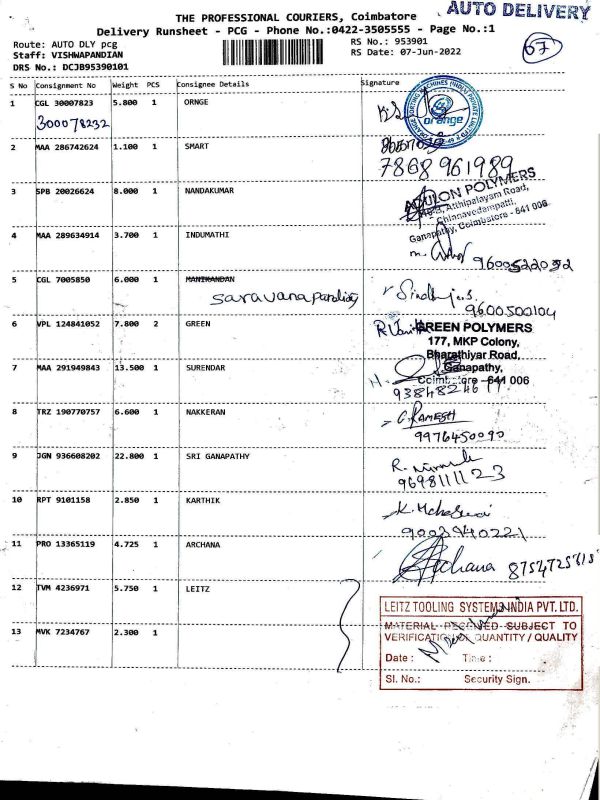 AUTO DELIVERY
THE PROFESSIONAL COURIERS, Coimbatore
Delivery Runsheet - PCG - Phone No.:0422-3505555 - Page No.:1
Route: AUTO DLY pcg
RS No.: 953901
67
Staff: VISHWAPANDIAN
RS Date: 07-Jun-2022
DRS No.: DCJB95390101
S No Consignment No Weight PCS Consignee Details Signature
1 CGL 30007823 5.800 1 ORNGE
300078232
orange
2 MAA 286742624 1.100 1 SMART
7868961989
3 SPB 20026624 8.000 1 NANDAKUMAR
POLYMERS
Atthipalayam Road,
Chinnavedampatti,
Ganapathy, Coimbatore - 641 006
4 MAA 289634914 3.700 1 INDUMATHI
5 CGL 7005850 6.000 1 MANIKANDAN
9600500104
6 VPL 124841052 7.800 2 GREEN
GREEN POLYMERS
177, MKP Colony,
Bharathiyar Road,
Ganapathy,
Coimbatore - 641 006
7 MAA 291949843 13.500 1 SURENDAR
8 TRZ 190770757 6.600 1 NAKKERAN
C. RAMESH
9976450090
9 JGN 936608202 22.800 1 SRI GANAPATHY
9698111123
10 RPT 9101158 2.850 1 KARTHIK
11 PRO 13365119 4.725 1 ARCHANA
Archana
12 TVM 4236971 5.750 1 LEITZ
LEITZ TOOLING SYSTEMS INDIA PVT. LTD.
13 MVK 7234767 2.300 1
MATERIAL RECEIVED SUBJECT TO
VERIFICATION OF QUANTITY / QUALITY
Date : Time :
Sl. No.: Security Sign.